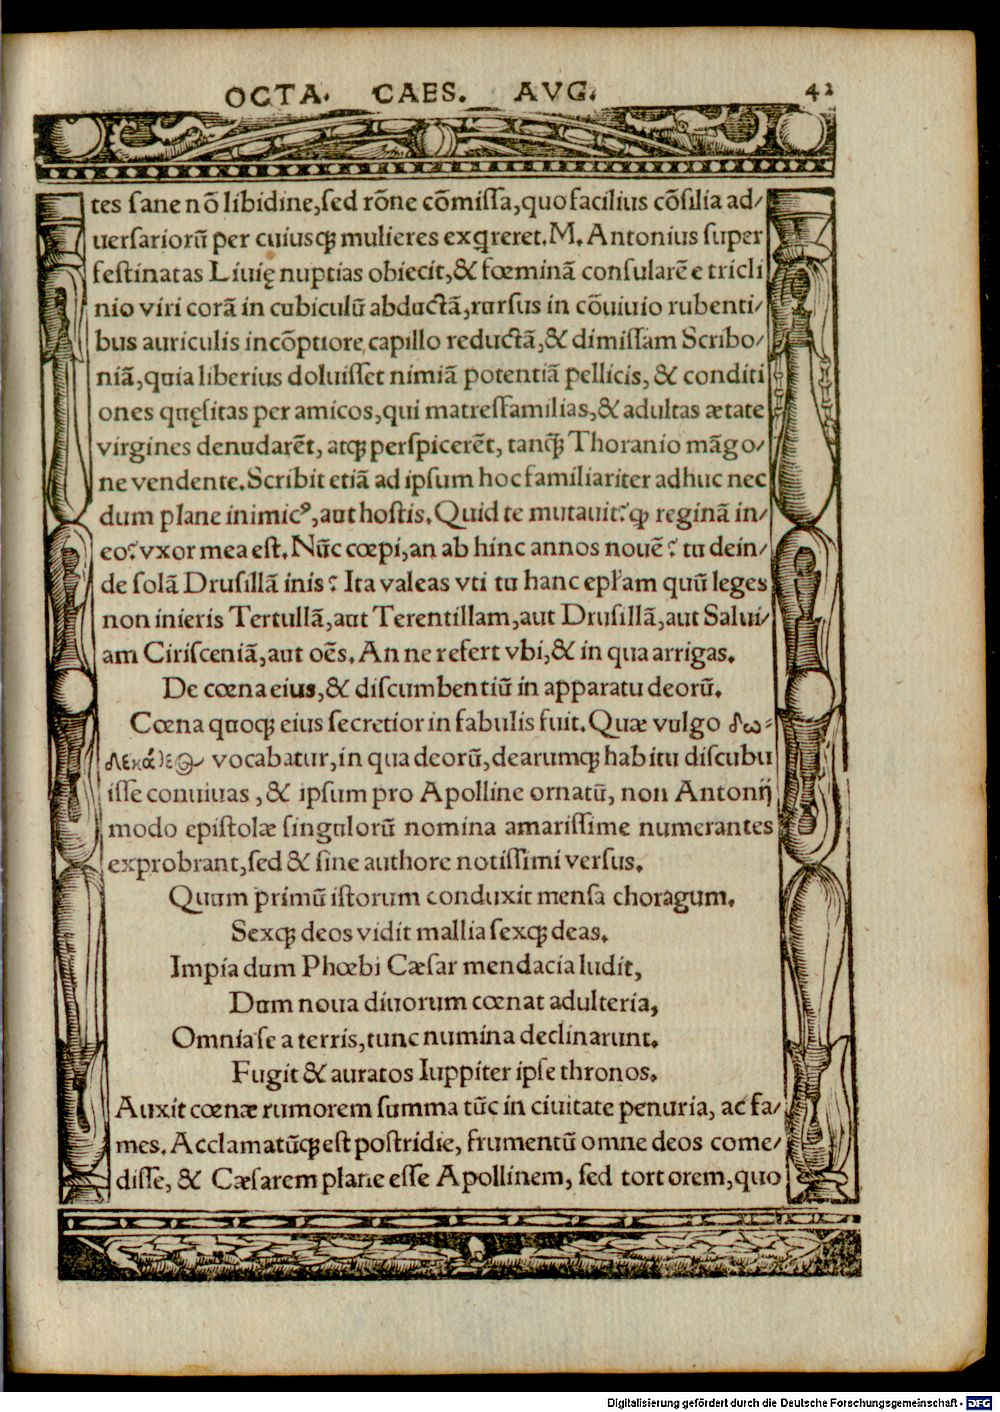 OCTA. CAES. AVG. 42
tes sane nō libidine, sed rōne cōmissa, quo facilius cōsilia ad/
uersariorū per cuiusq; mulieres exq̄reret. M. Antonius super
festinatas Liuię nuptias obiecit, & fœminā consularē e tricli
nio viri corā in cubiculū abductā, rursus in cōuiuio rubenti/
bus auriculis incōptiore capillo reductā, & dimissam Scribo/
niā, quia liberius doluisset nimiā potentiā pellicis, & conditi
ones quęsitas per amicos, qui matresfamilias, & adultas ætate
virgines denudarēt, atq; perspicerēt, tanq̄; Thoranio māgo/
ne vendente. Scribit etiā ad ipsum hoc familiariter adhuc nec
dum plane inimicꝰ, aut hostis. Quid te mutauit? ꝙ reginā in/
eo? vxor mea est. Nūc cœpi, an ab hinc annos nouē? tu dein/
de solā Drusillā inis? Ita valeas vti tu hanc epl̄am quū leges
non inieris Tertullā, aut Terentillam, aut Drusillā, aut Salui/
am Cirisceniā, aut oēs. An ne refert vbi, & in qua arrigas.
De cœna eius, & discumbentiū in apparatu deorū.
Cœna quoq; eius secretior in fabulis fuit. Quæ vulgo δω-
δεκάθεος vocabatur, in qua deorū, dearumq; habitu discubu
isse conuiuas, & ipsum pro Apolline ornatū, non Antonij
modo epistolæ singulorū nomina amarissime numerantes
exprobrant, sed & sine authore notissimi versus.
Quum primū istorum conduxit mensa choragum.
Sexq; deos vidit mallia sexq; deas.
Impia dum Phœbi Cæsar mendacia ludit,
Dum noua diuorum cœnat adulteria,
Omnia se a terris, tunc numina declinarunt.
Fugit & auratos Iuppiter ipse thronos.
Auxit cœnæ rumorem summa tūc in ciuitate penuria, ac fa/
mes. Acclamatūq; est postridie, frumentū omne deos come/
disse, & Cæsarem plane esse Apollinem, sed tortorem, quo
Digitalisierung gefördert durch die Deutsche Forschungsgemeinschaft - DFG